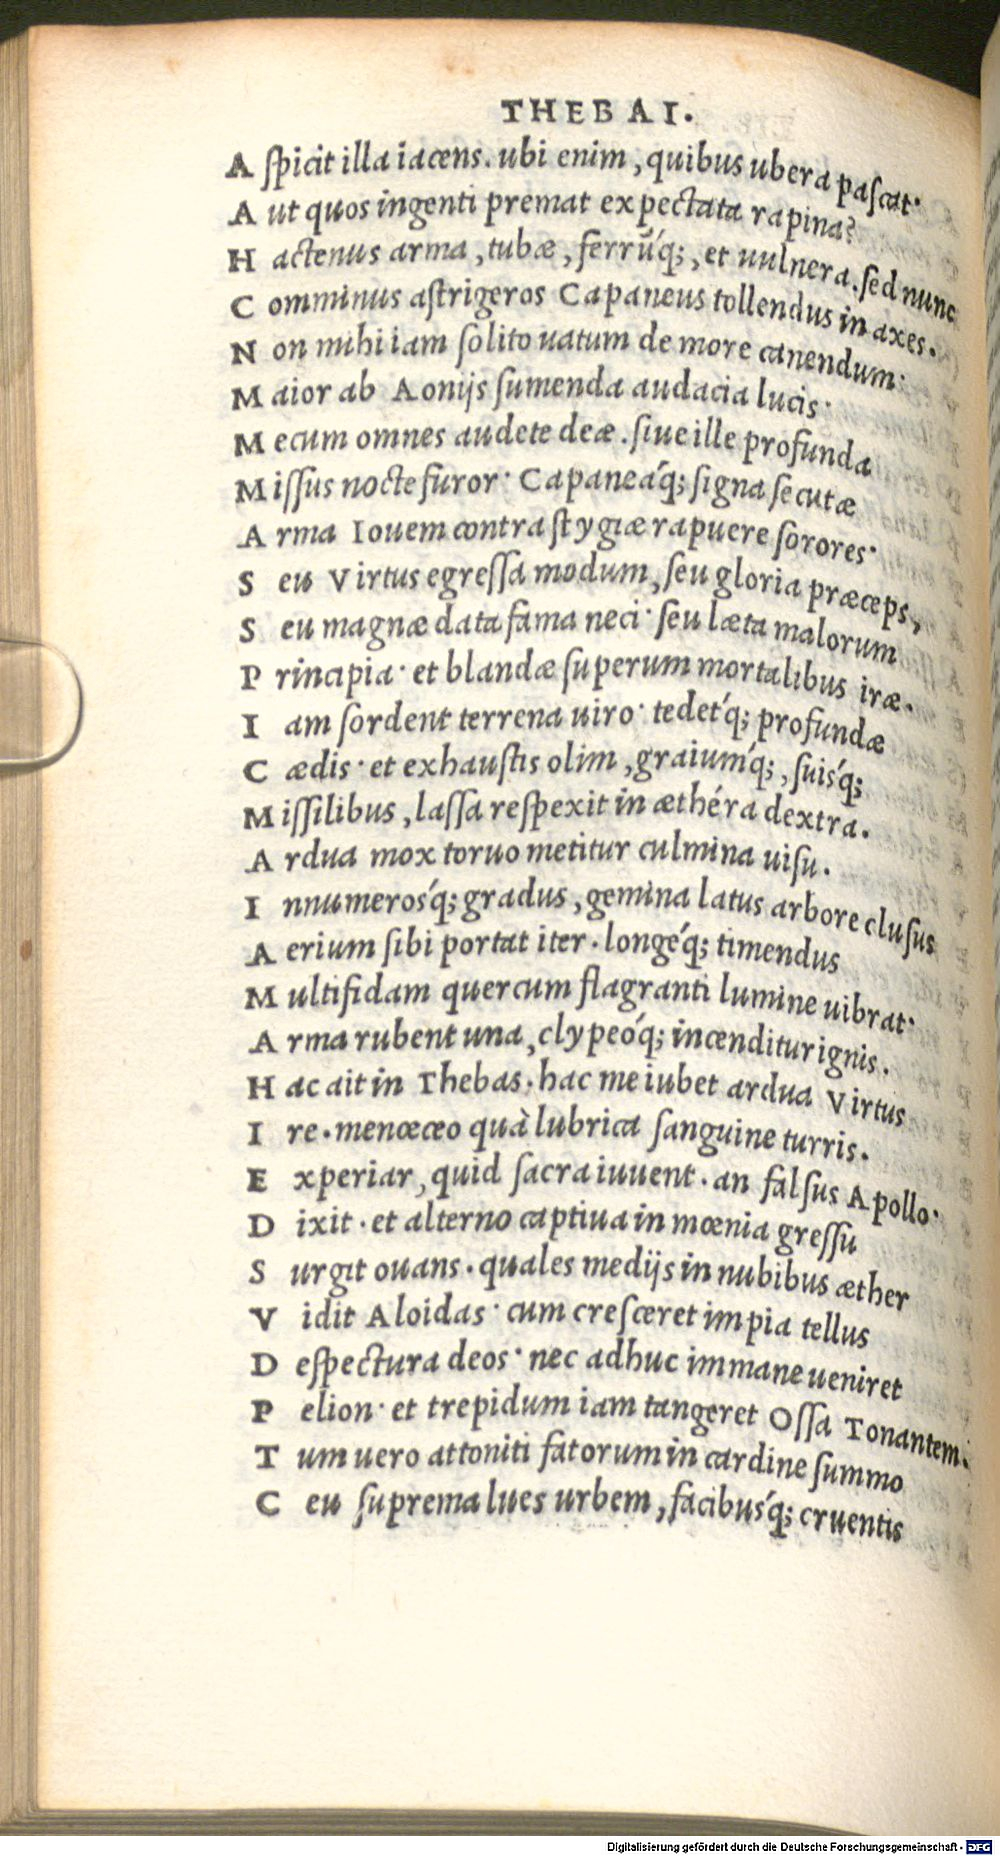 THEBAI.
A spicit illa iacens. ubi enim, quibus ubera pascat·
A ut quos ingenti premat expectata rapina?
H actenus arma, tubæ, ferrūq́;, et uulnera. sed nunc
C omminus astrigeros Capaneus tollendus in axes.
N on mihi iam solito uatum de more canendum·
M aior ab Aonijs sumenda audacia lucis·
M ecum omnes audete deæ. siue ille profunda
M issus nocte furor· Capaneáq́; signa secutæ
A rma Iouem contra stygiæ rapuere sorores·
S eu Virtus egressa modum, seu gloria præceps,
S eu magnæ data fama neci· seu læta malorum
P rincipia· et blandæ superum mortalibus iræ.
I am sordent terrena uiro· tedetq́; profundæ
C ædis· et exhaustis olim, graiumq́;, suisq́;
M issilibus, lassa respexit in æthéra dextra.
A rdua mox toruo metitur culmina uisu.
I nnumerosq́; gradus, gemina latus arbore clusus
A erium sibi portat iter. longeq́; timendus
M ultifidam quercum flagranti lumine uibrat·
A rma rubent una, clypeoq́; incenditur ignis.
H ac ait in Thebas. hac me iubet ardua Virtus
I re. menœceo quà lubrica sanguine turris.
E xperiar, quid sacra iuuent. an falsus Apollo·
D ixit· et alterno captiua in mœnia gressu
S urgit ouans. quales medijs in nubibus æther
V idit Aloidas· cum cresceret impia tellus
D espectura deos· nec adhuc immane ueniret
P elion· et trepidum iam tangeret Ossa Tonantem.
T um uero attoniti fatorum in cardine summo
C eu suprema lues urbem, facibusq́; cruentis
Digitalisierung gefördert durch die Deutsche Forschungsgemeinschaft - DFG